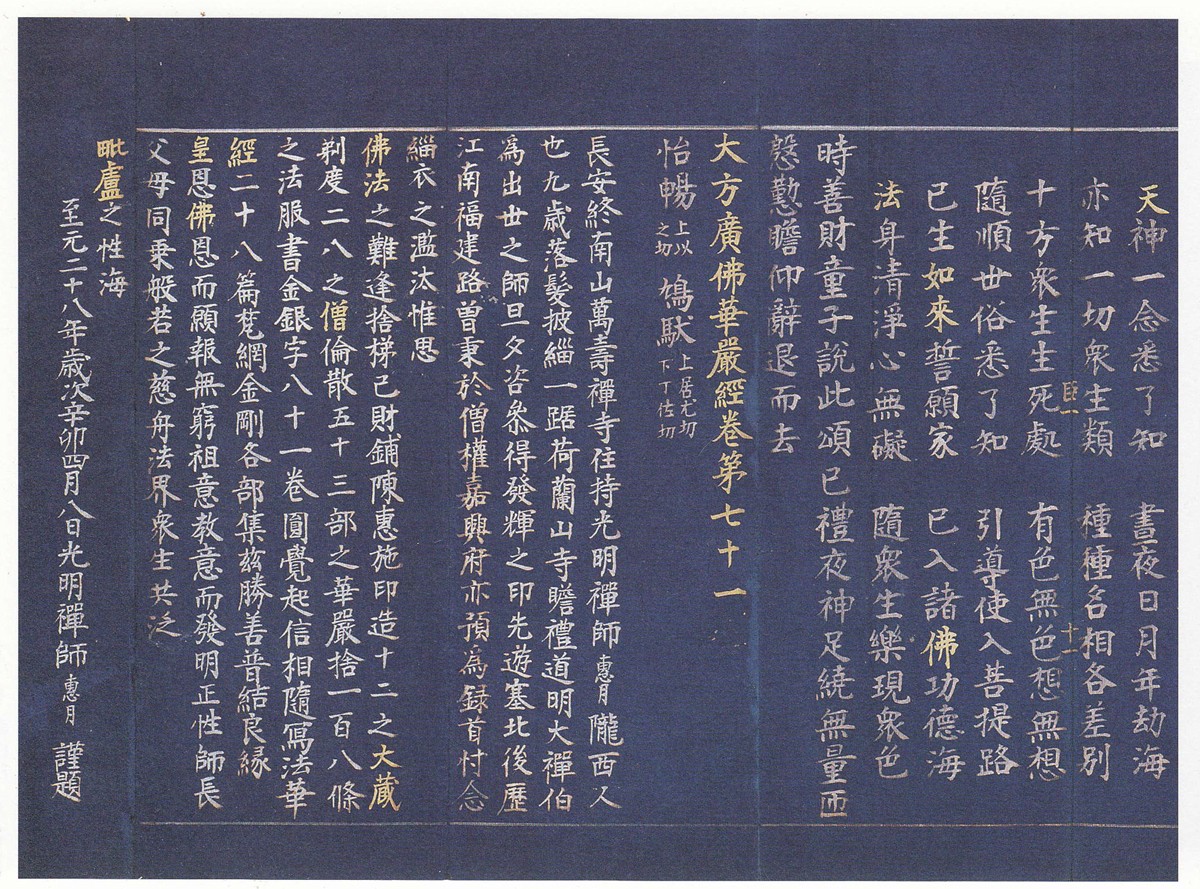 天神一念悉了知　晝夜日月年劫海
亦知一切衆生類　種種名相各差別
十方衆生生死處　有色無色想無想
隨順世俗悉了知　引導使入菩提路
已生如來誓願家　已入諸佛功德海
法身清淨心無礙　隨衆生樂現衆色
時善財童子說此頌已禮夜神足繞無量匝
慇懃瞻仰辭退而去
大方廣佛華嚴經卷第七十一
怡暢上以之切　鳩馱上居尤切下丁佐切
長安終南山萬壽禪寺住持光明禪師惠月隴西人
也九歲落髮披緇一踞荷蘭山寺瞻禮道明大禪伯
為出世之師旦夕咨叅得發輝之印先遊塞北後歷
江南福建路曾秉於僧權嘉興府亦預為録首忖念
緇衣之濫汰惟思
佛法之難逢捨梯己財鋪陳惠施印造十二之大藏
剃度二八之僧倫散五十三部之華嚴捨一百八條
之法服書金銀字八十一卷圓覺起信相隨寫法華
經二十八篇梵網金剛各部集玆勝善普結良緣
皇恩佛恩而願報無窮祖意教意而發明正性師長
父母同乗般若之慈舟法界衆生共泛
毗盧之性海
至元二十八年歲次辛卯四月八日光明禪師惠月　謹題